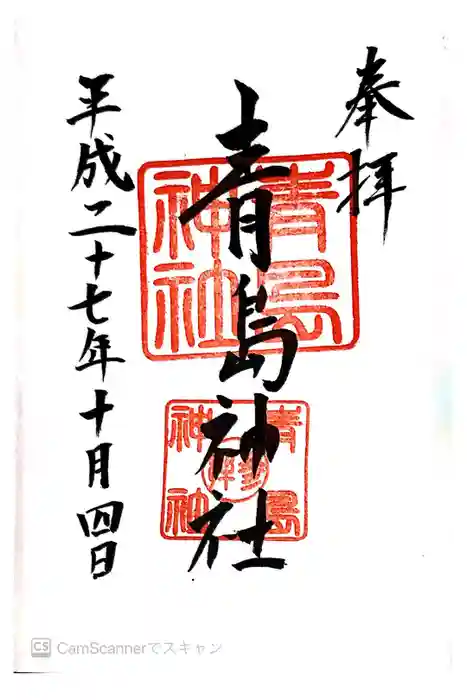 奉拝
青島神社
平成二十七年十月四日
青島
神社
青島
神社
CS CamScannerでスキャン